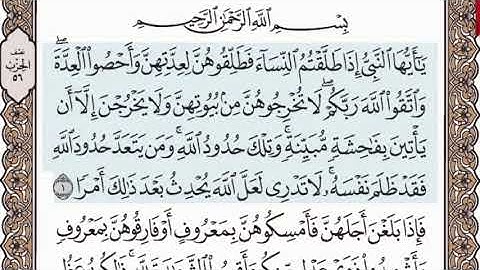 بِسْمِ اللَّهِ الرَّحْمَٰنِ الرَّحِيمِ
يَٰٓأَيُّهَا ٱلنَّبِىُّ إِذَا طَلَّقْتُمُ ٱلنِّسَآءَ فَطَلِّقُوهُنَّ لِعِدَّتِهِنَّ وَأَحْصُوا۟ ٱلْعِدَّةَ ۖ
وَٱتَّقُوا۟ ٱللَّهَ رَبَّكُمْ ۖ لَا تُخْرِجُوهُنَّ مِنۢ بُيُوتِهِنَّ وَلَا يَخْرُجْنَ إِلَّآ أَن
يَأْتِينَ بِفَٰحِشَةٍ مُّبَيِّنَةٍ ۚ وَتِلْكَ حُدُودُ ٱللَّهِ ۚ وَمَن يَتَعَدَّ حُدُودَ ٱللَّهِ
فَقَدْ ظَلَمَ نَفْسَهُۥ ۚ لَا تَدْرِى لَعَلَّ ٱللَّهَ يُحْدِثُ بَعْدَ ذَٰلِكَ أَمْرًا ١
فَإِذَا بَلَغْنَ أَجَلَهُنَّ فَأَمْسِكُوهُنَّ بِمَعْرُوفٍ أَوْ فَارِقُوهُنَّ بِمَعْرُوفٍ
نصف
الحزب
٥٦